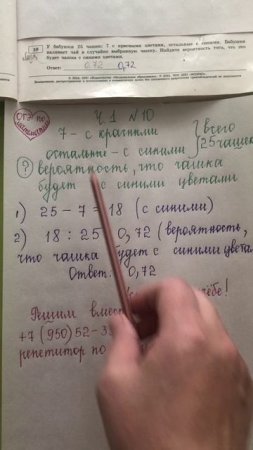 У бабушки 25 чашек: 7 с красными цветами, остальные с синими. Бабушка
наливает чай в случайно выбранную чашку. Найдите вероятность того, что это
будет чашка с синими цветами.
Ответ: 0,72 0,72
Ч.1 №10
7 - с красными
остальные - с синими
всего
25 чашек
? вероятность, что чашка
будет с синими цветами
1) 25 - 7 = 18 (с синими)
2) 18 : 25 0,72 (вероятность,
что чашка будет с синими цвета
Ответ: 0,72
Решим вмест
+7 (950) 52-3
репетитор по